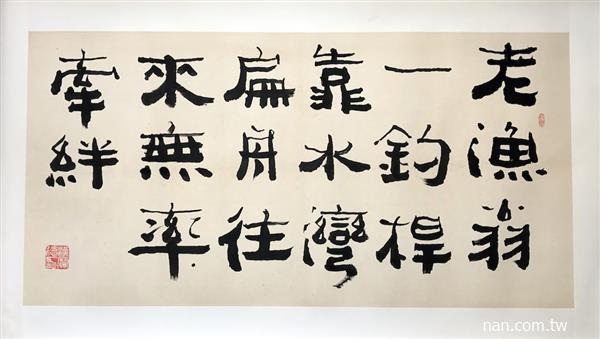 老漁翁
一釣桿
靠水灣
扁舟往
來無率
牽絆
nan.com.tw